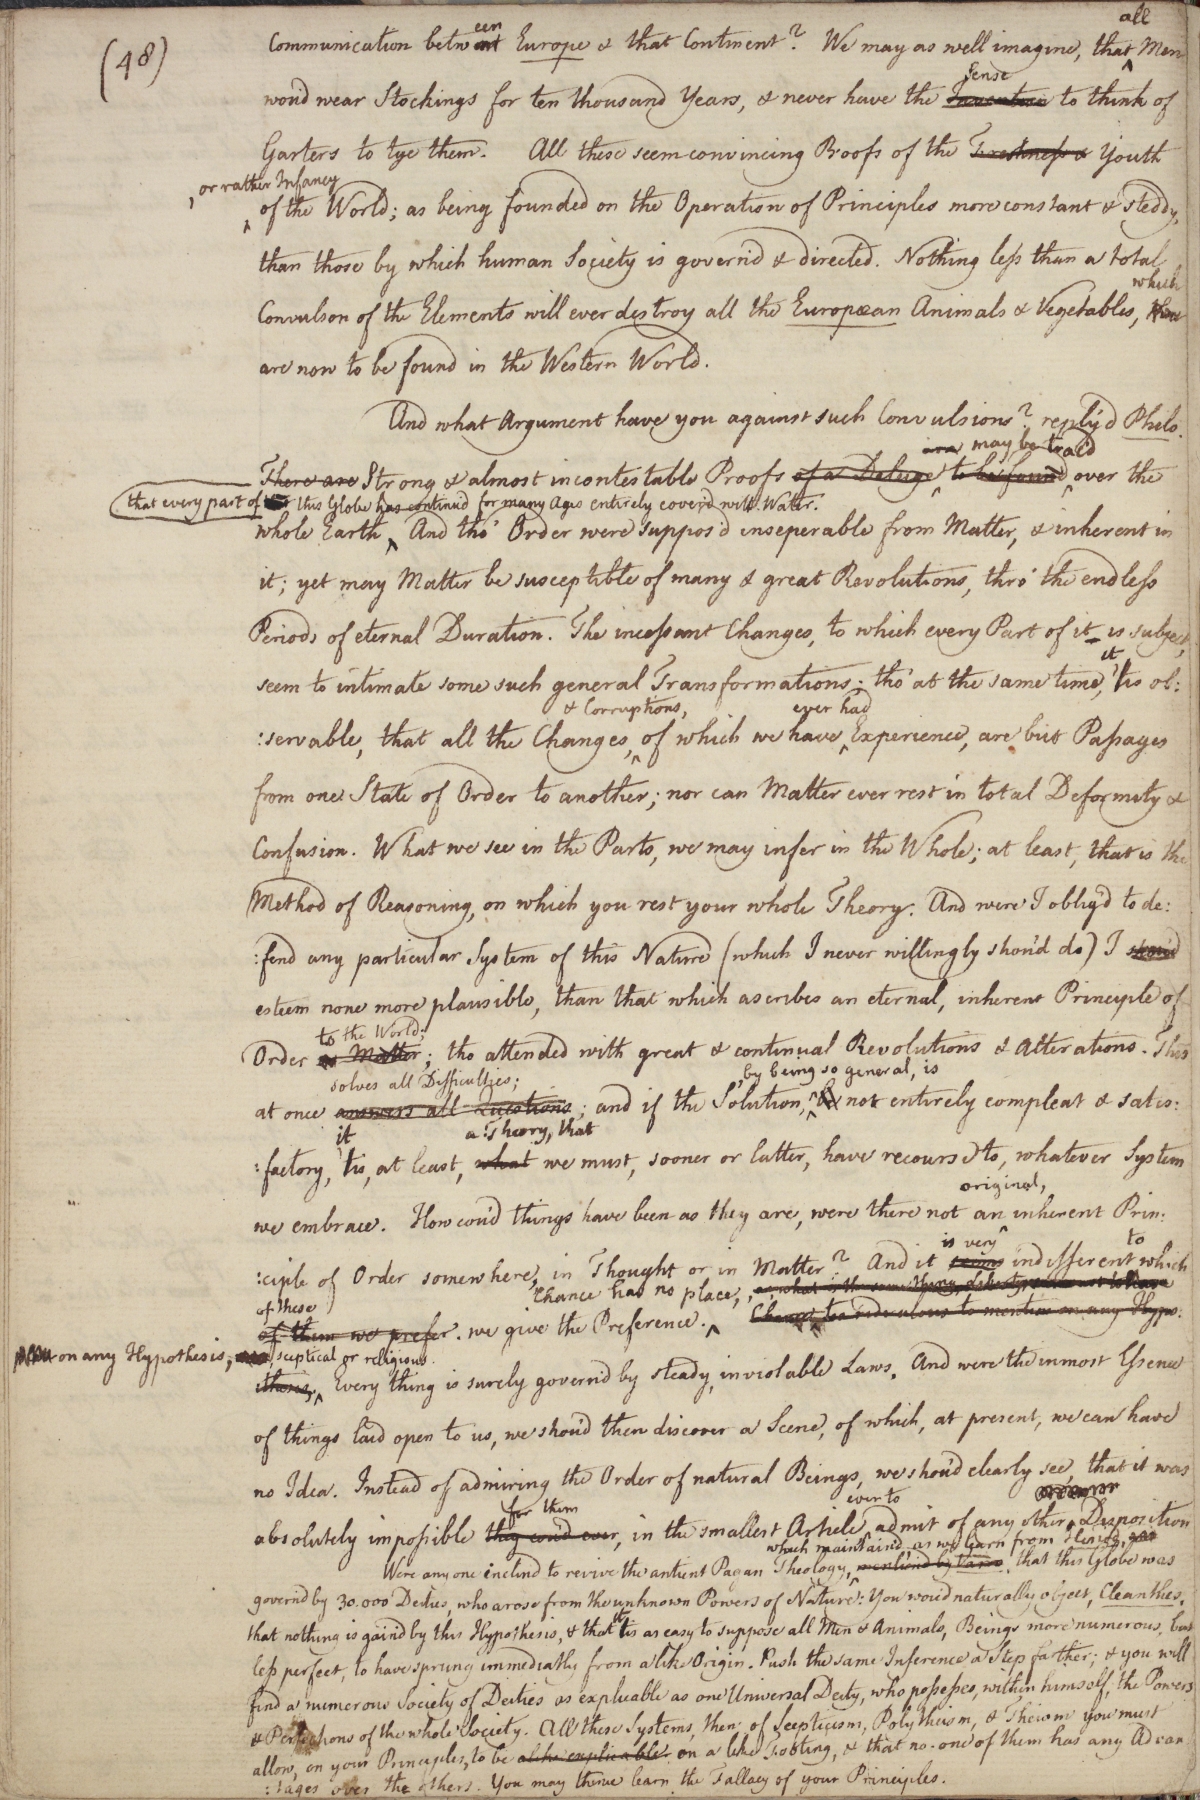 (48)
all
een
Communication between Europe & that Continent? We may as well imagine, that Men
sense
wou'd wear Stockings for ten thousand Years, & never have the Invention to think of
Garters to tye them. All these seem convincing Proofs of the Freshness & Youth
, or rather Infancy
of the World; as being founded on the Operation of Principles more constant & steddy,
than those by which human Society is govern'd & directed. Nothing less than a total
which
Convulson of the Elements will ever destroy all the European Animals & Vegetables,
are now to be found in the Western World.
And what Argument have you against such Convulsions? reply'd Philo.
may be trac'd
There are Strong & almost incontestable Proofs of a Deluge to be found over the
that every part of this Globe has continu'd for many Ages entirely cover'd with Water.
whole Earth, And tho' Order were suppos'd inseperable from Matter, & inherent in
it; yet may Matter be susceptible of many & great Revolutions, thro' the endless
Periods of eternal Duration. The incessant Changes, to which every Part of it is subject,
it
seem to intimate some such general Transformations; tho' at the same time, 'tis ob:
& Corruptions, ever had
:servable, that all the Changes, of which we have Experience, are but Passages
from one State of Order to another; nor can Matter ever rest in total Deformity &
Confusion. What we see in the Parts, we may infer in the Whole; at least, that is the
Method of Reasoning, on which you rest your whole Theory. And were I oblig'd to de:
:fend any particular System of this Nature (which I never willingly shou'd do) I shou'd
esteem none more plausible, than that which ascribes an eternal, inherent Principle of
to the World;
Order to Matter; tho attended with great & continual Revolutions & Alterations. This
solves all Difficulties; by being so general, is
at once answers all Questions; and if the Solution, be not entirely compleat & satis:
it a Theory, that
:factory, 'tis, at least, what we must, sooner or latter, have recourse to, whatever System
original,
we embrace. How cou'd things have been as they are, were there not an inherent Prin:
is very to
:ciple of Order somewhere, in Thought or in Matter? And it seems indifferent which
Chance has no place,
of these
of them we prefer. we give the Preference. Chance too ridiculous to mention on any Hypo:
on any Hypothesis, sceptical or religious.
:thesis, Every thing is surely govern'd by steady, inviolable Laws. And were the inmost Essence
of things laid open to us, we shou'd then discover a Scene, of which, at present, we can have
no Idea. Instead of admiring the Order of natural Beings, we shou'd clearly see, that it was
for them ever to
absolutely impossible they cou'd ever, in the smallest Article, admit of any other Disposition
which maintain'd, as we learn from Hesiod,
Were any one inclin'd to revive the antient Pagan Theology, mention'd by Varro, that this Globe was
govern'd by 30.000 Deities, who arose from the unknown Powers of Nature: You wou'd naturally object, Cleanthes,
it
that nothing is gain'd by this Hypothesis, & that 'tis as easy to suppose all Men & Animals, Beings more numerous, but
less perfect, to have sprung immediatly from a like Origin. Push the same Inference a Step farther; & you will
find a numerous Society of Deities as explicable as one Universal Deity, who possesses, within himself, the Powers
& Perfections of the whole Society. All these Systems, then, of Scepticism, Polytheism, & Theism you must
allow, on your Principles, to be alike explicable. on a like Footing, & that no one of them has any Advan
:tages over the others. You may thence learn the Fallacy of your Principles.